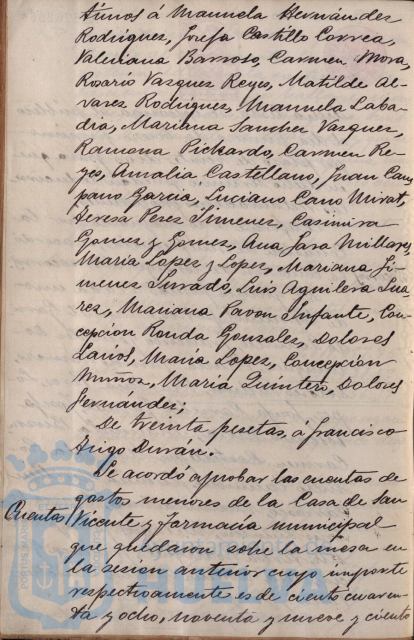 timos á Manuela Hernández
Rodriguez, Josefa Castillo Correa,
Valeriana Barroso, Carmen Mora,
Rosario Vazquez Reyes, Matilde Al-
varez Rodriguez, Manuela Laba-
dia, Mariana Sanchez Vazquez,
Ramona Pickardo, Carmen Re-
yes, Amalia Castellano, Juan Cam-
pano Garcia, Luciano Cano Mirat,
Teresa Perez Jimenez, Casimira
Gomez y Gomez, Ana Jara Millares,
Maria Lopez y Lopez, Mariana Ji-
menez Jurado, Luis Aguilera Sua-
rez, Mariana Pavon Infante, Con-
cepcion Ronda Gonzalez, Dolores
Laiños, Maria Lopez, Concepcion
Muñoz, Maria Quintero, Dolores
Fernández;
De treinta pesetas, á Francisco
Trigo Durán.
Se acordó aprobar las cuentas de
gastos menores de la Casa de San
Cuentas Vicente y Farmacia municipal
que quedaron sobre la mesa en
la sesion anterior cuyo importe
respectivamente es de ciento cuaren-
ta y ocho, noventa y nueve y ciento